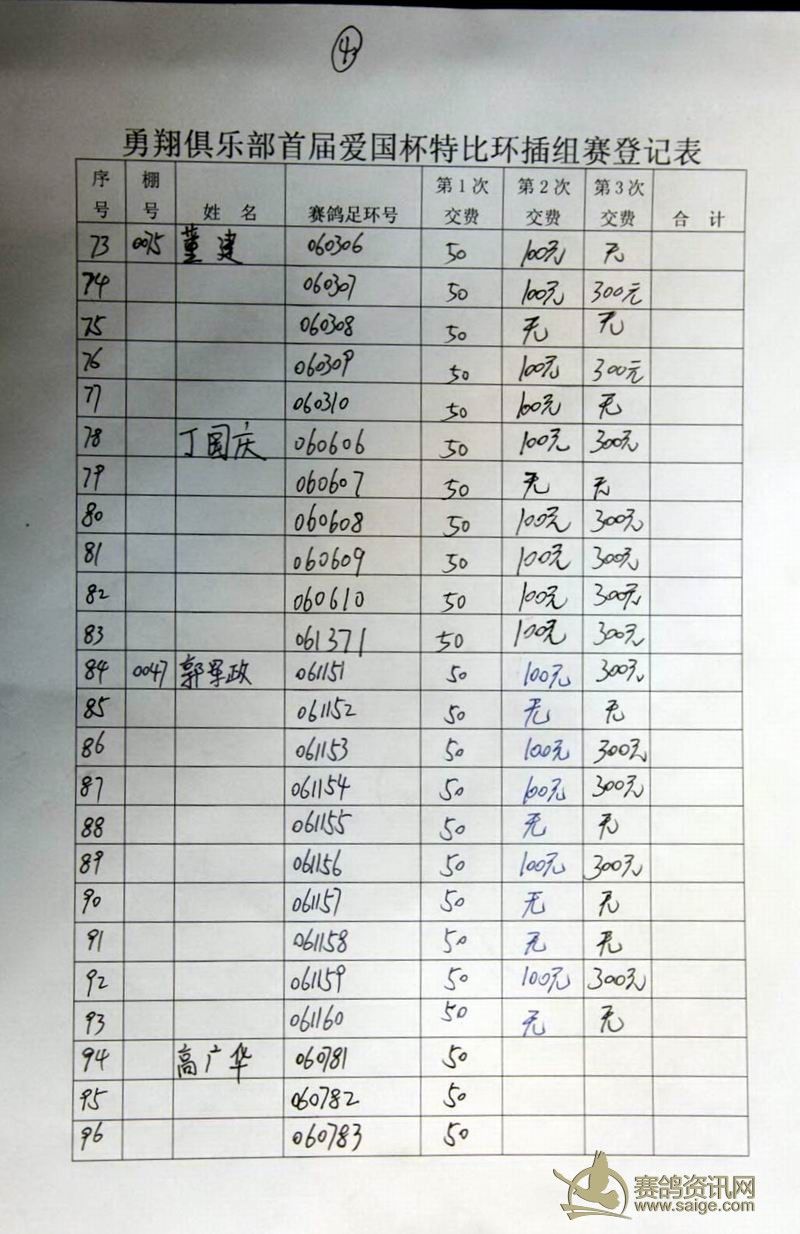 ④
勇翔俱乐部首届爱国杯特比环插组赛登记表
序号 棚号 姓名 赛鸽足环号 第1次交费 第2次交费 第3次交费 合计
73 0075 董建 060306 50 100元 无
74 060307 50 100元 300元
75 060308 50 无 无
76 060309 50 100元 300元
77 060310 50 100元 无
78 丁国庆 060606 50 100元 300元
79 060607 50 无 无
80 060608 50 100元 300元
81 060609 50 100元 300元
82 060610 50 100元 300元
83 061371 50 100元 300元
84 0047 郭军政 061151 50 100元 300元
85 061152 50 无 无
86 061153 50 100元 300元
87 061154 50 100元 300元
88 061155 50 无 无
89 061156 50 100元 300元
90 061157 50 无 无
91 061158 50 无 无
92 061159 50 100元 300元
93 061160 50 无 无
94 高广华 060781 50
95 060782 50
96 060783 50
赛鸽资讯网
www.saige.com